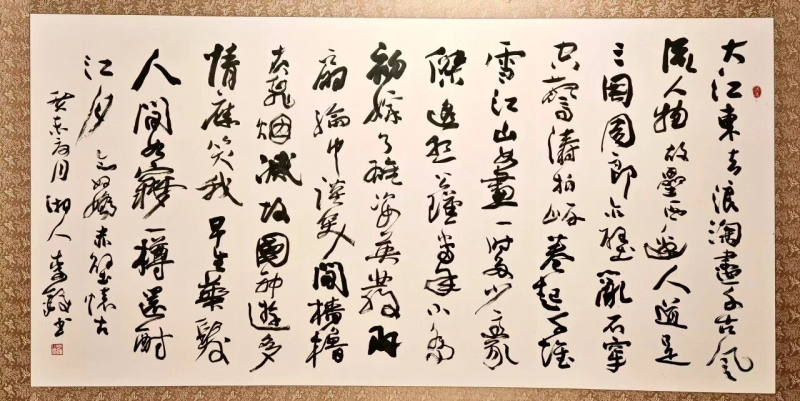 大江東去浪淘盡千古風
流人物故壘西邊人道是
三國周郎赤壁亂石穿
空驚濤拍岸卷起千堆
雪江山如畫一時多少豪
傑遙想公瑾當年小喬
初嫁了雄姿英發羽
扇綸巾談笑間檣櫓
灰飛烟滅故國神遊多
情應笑我早生華髮
人間如夢一樽還酹
江月 念奴嬌赤壁懷古
癸未 月 湘人 李 書